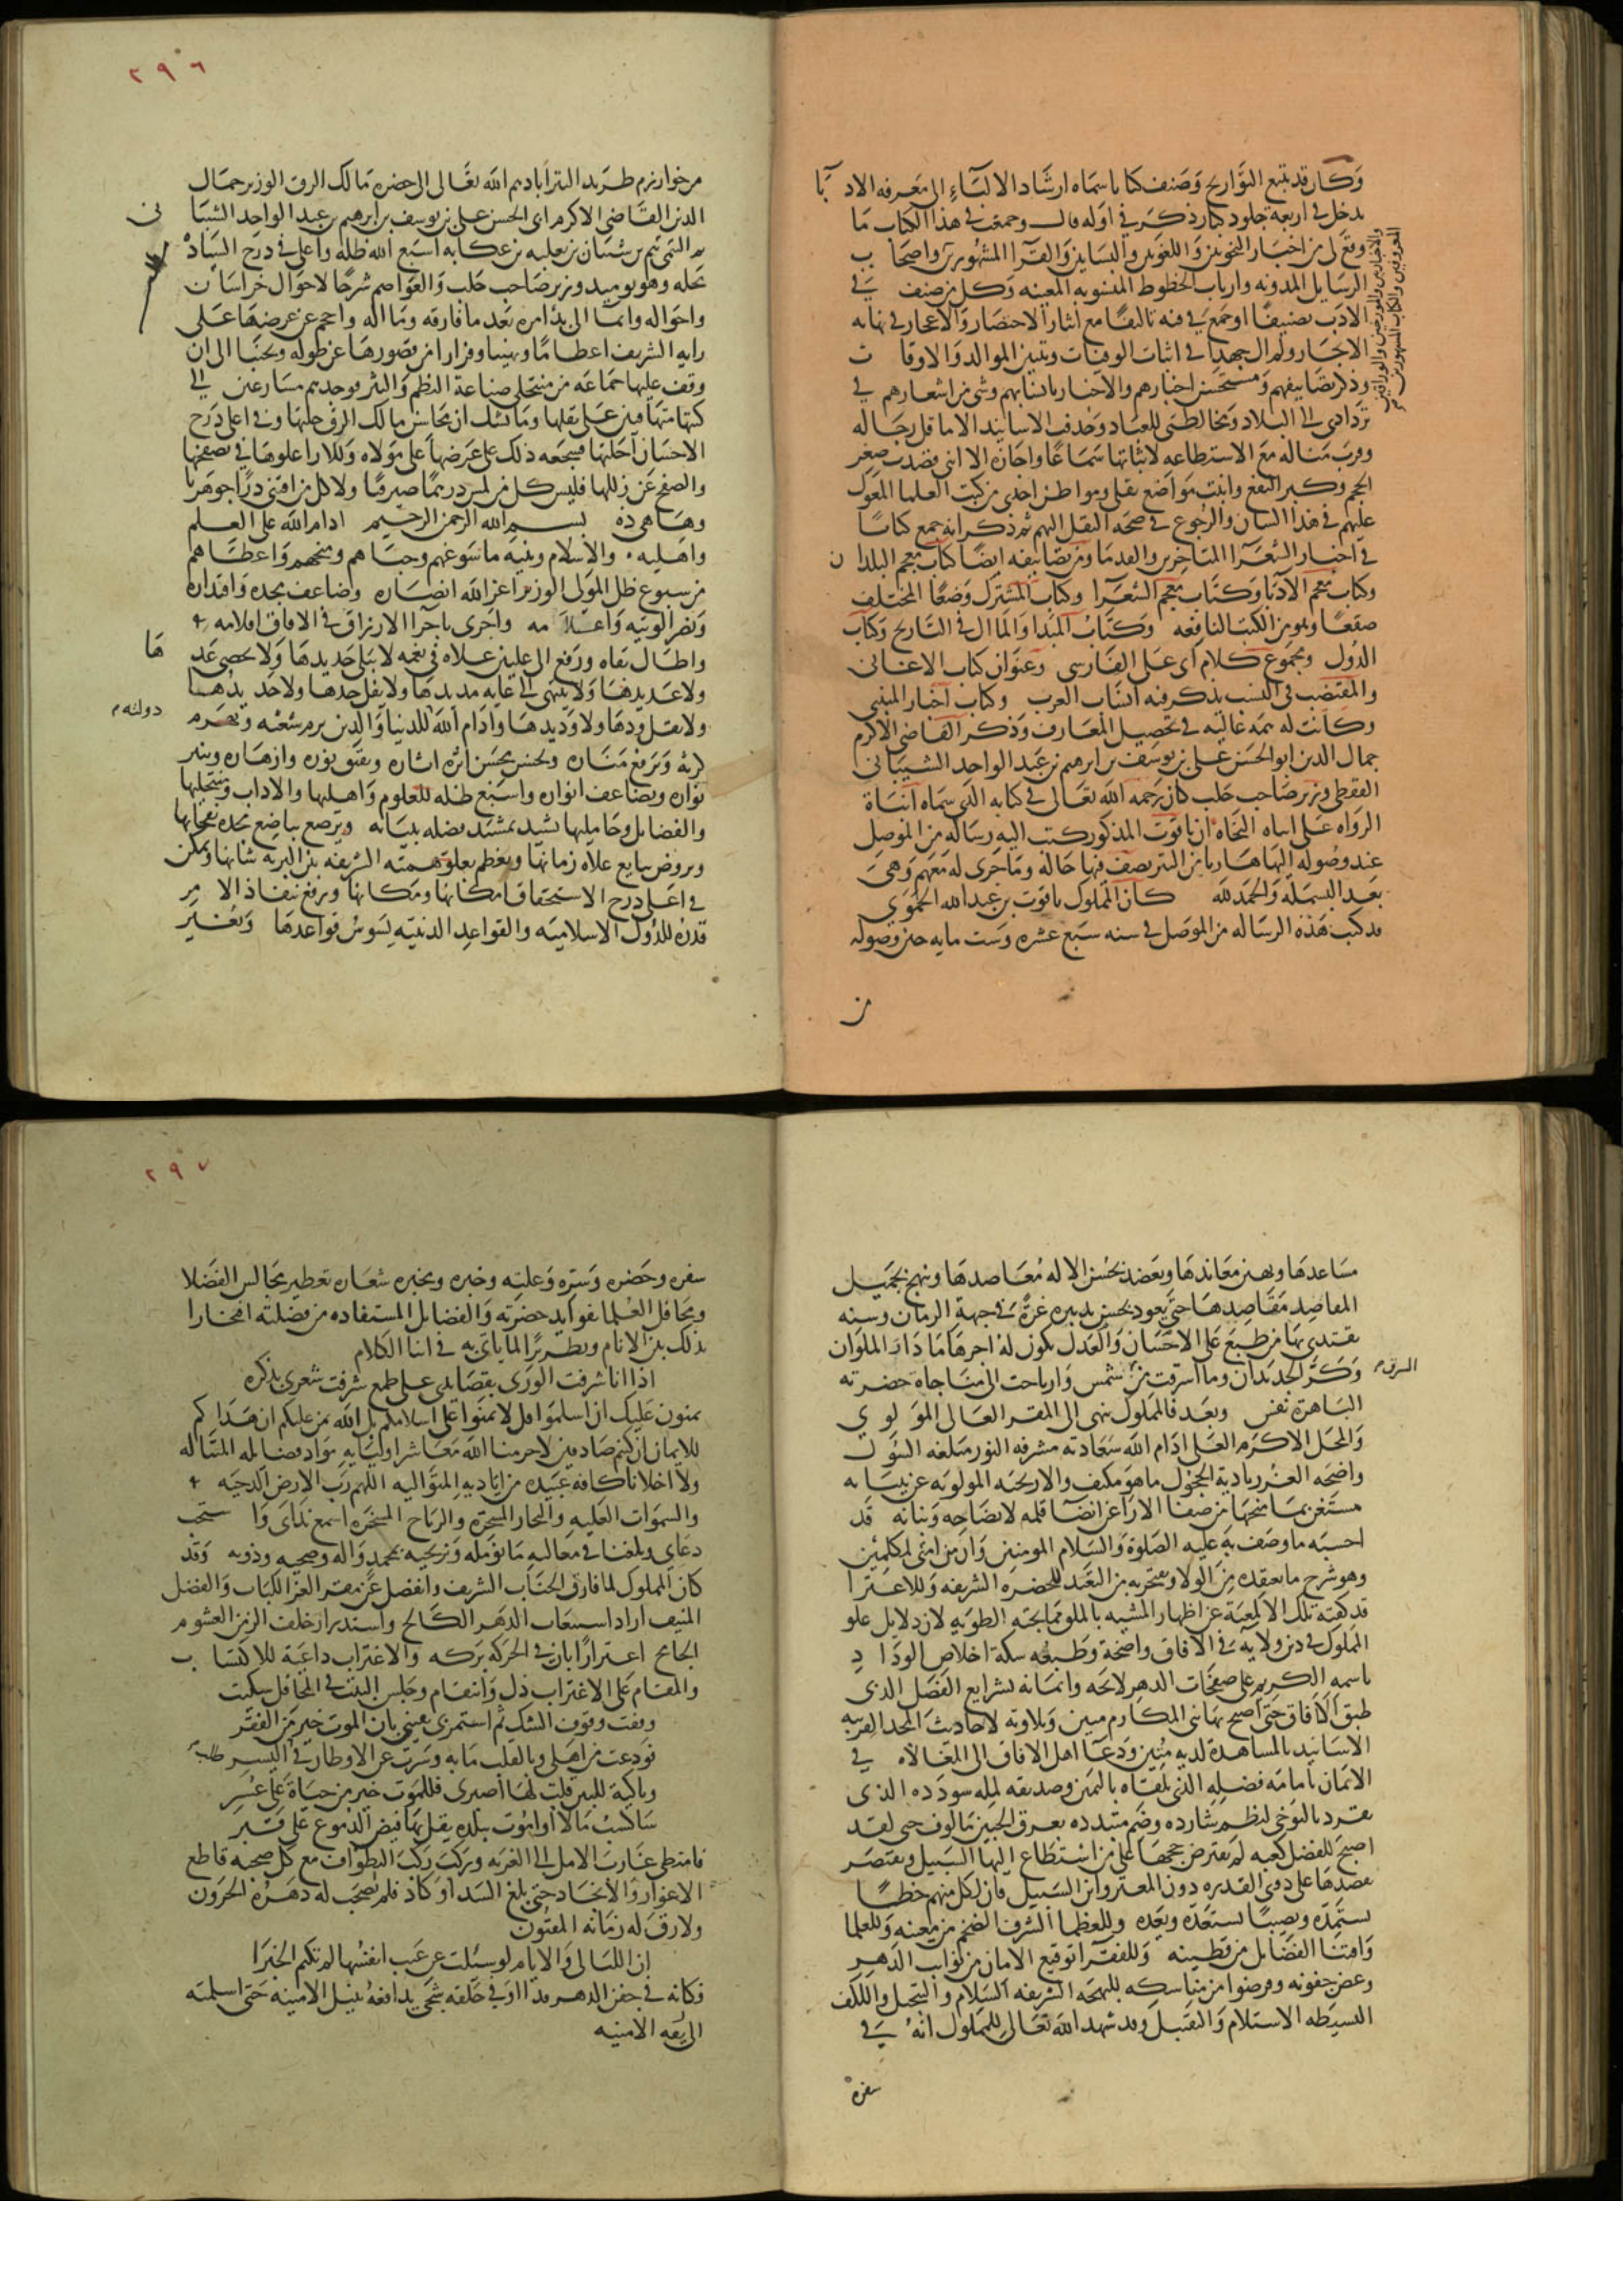 وكان قد تتبع التواريخ وصنف كتابا سماه ارشاد الالباء الى معرفه الادبا
يدخل في اربعة جلود كبار ذكر في اوله قال وجمعت في هذا الكتاب ما
وقع لي من اخبار النحويين واللغويين والنسابين والقرا المشهورين واصحاب
والاخباريين والمورخين والوراقين
المعروفين والكتاب المشهورين
الرسايل المدونه وارباب الخطوط المنسوبه المعينه وكل من صنف في
الادب تصنيفا او جمع في فنه تاليفا مع ايثار الاختصار والاعجاز في نهايه
الايجاز ولم ال جهدا في اثبات الوفيات وتبيين الموالد والاوقات
وذكر تصانيفهم ومستحسن اخبارهم والاخبار بانسابهم وشي من اشعارهم في
تردادي الى البلاد ومخالطتي للعباد وحذفت الاسانيد الا ما قل رجاله
وقرب مناله مع الاستطاعه لاثباتها سماعا واجازه الا انني قصدت صغر
الحجم وكبر النفع واثبت مواضع نقلي ومواطن اخذي من كتب العلما المعول
عليهم في هذا الشان والرجوع في صحه النقل اليهم ثم ذكر انه جمع كتابا
في اخبار الشعرآ المتاخرين والقدما ومن تصانيفه ايضا كتاب معجم البلدان
وكتاب معجم الادبا وكتاب معجم الشعرآ وكتاب المشترك وضعا المختلف
صقعا وهو من الكتب النافعه وكتاب المبدا والمآل في التاريخ وكتاب
الدول ومجموع كلام ابي على الفارسي وعنوان كتاب الاغاني
والمقتضب في النسب يذكر فيه انساب العرب وكتاب اخبار المتنبي
وكانت له همه عاليه في تحصيل المعارف وذكر القاضي الاكرم
جمال الدين ابو الحسن علي بن يوسف بن ابرهيم بن عبد الواحد الشيباني
القفطي وزير صاحب حلب كان رحمه الله تعالى في كتابه الذي سماه انباة
الرواه على انباه النحاه ان ياقوت المذكور كتب اليه رساله من الموصل
عند وصوله اليها هاربا من التتر يصف فيها حاله وما جرى له معهم وهي
بعد البسملة والحمد لله كان المملوك ياقوت بن عبد الله الحموي
قد كتب هذه الرساله من الموصل في سنه سبع عشره وست مايه حين وصوله
من
٢٩٦
من خوارزم طريد التتر ابادهم الله تعالى الى حضره مالك الرق الوزير جمال
الدين القاضي الاكرم ابي الحسن علي بن يوسف بن ابرهيم بن عبد الواحد الشيباني
ثم التيمي تيم بن شيبان بن ثعلبه بن عكابه اسبغ الله ظله واعلى في درج السياده
محله وهو يوميد وزير صاحب حلب والعواصم شرحا لاحوال خراسان
واحواله وايما الى بدا امره بعد ما فارقه وماله واحجم عن عرضها على
رايه الشريف اعظاما وتهيبا وفرارا من قصورها عن طوله وتجنبا الى ان
وقف عليها جماعه من منتحلي صناعة النظم والنثر فوجدهم مسارعين الى
كتبها متهافتين على نقلها وما نشك ان محاسن مالك الرق حلتها وفي اعلى درج
الاحسان احلتها فشجعه ذلك على عرضها على مولاه وللارا علوها في تصفحها
والصفح عن زللها فليس كل من لمس درهما صيرفيا ولا كل من اقتنى درا جوهريا
وها هي ذه بسم الله الرحمن الرحيم ادام الله على العلم
واهليه والاسلام وبنيه ما سوغهم وحباهم ومنحهم واعطاهم
من سبوغ ظل المولى الوزير اعز الله انصاره وضاعف مجده واقتداره
ونصر الويته واعلامه واجرى باجرا الارزاق في الافاق اقلامه
واطال بقاه ورفع الى عليين علاه في نعمه لا يبلى جديدها ولا يحصى عدها
ولا عديدها ولا ينتهي الى غايه مديدها ولا يفل حدها ولا حديدها
ولا يقل ودها ولا وديدها وادام دولته للدنيا والدين يرم شعثه ويهزم
كربه ويرفع مناره ويحسن بحسن اثره اثاره ويفتق نوره وازهاره وينير
نواره ويضاعف انواره واسبغ ظله للعلوم واهليها والاداب ومنتحليها
والفضايل وحامليها يشيد بمشيد فضله بنيانه ويرصع بناصع مجده تيجانها
ويروض بيانع علاه زمانها ويعظم بعلو همته الشريفه بين البريه شانها ويمكن
في اعلى درج الاستحقاق امكانها ومكانها ويرفع بنفاذ الامر
قدره للدول الاسلاميه والقواعد الدينيه يسوس قواعدها ويعز
مساعدها ويهين معاندها ويعضد بحسن الاياله معاضدها وينهج بجميل
المقاصد مقاصدها حتى يعود بحسن تدبيره غرة في جبهة الزمان وسنه
يقتدي بها من طبع على الاحسان والعدل يكون له اجرها ما دام الملوان
وكر الجديدان وما اشرقت من الشرق شمس وارتاحت الى مناجاة حضرته
الباهرة نفس وبعد فالمملوك ينهي الى المقر العالي المولوي
والمحل الاكرم العلي ادام الله سعادته مشرقه النور مبلغه السول
واضحه الغرر بادية الحجول ما هو مكتف والاريحيه المولويه عن تبيانه
مستغن بما منحها من صفا الارآ عن امضا قلمه لايضاحه وبيانه قد
احسبه ما وصف به عليه الصلوة والسلام المومنين وان من امتي لمكلمين
وهو شرح ما يعتقده من الولا ويفتخر به من التعبد للحضره الشريفه والاعتزا
قد كفته تلك الالمعية عن اظهار المشبه بالملق مما تجنه الطويه لان دلايل علو
المملوك في دين ولايه في الافاق واضحة وطبعه سكة اخلاص الوداد
باسمه الكريم على صفحات الدهر لايحه وايمانه بشرايع الفضل الذي
طبق الافاق حتى اصبح بها بني المكارم متين وتلاوته لاحاديث المجد القريبه
الاسانيد بالمشاهدة لديه مبين ودعا اهل الافاق الى المغالاه في
الايمان بامامه فضله الذي تلقاه باليمين وتصديقه لمله سودده الذي
تفرد بالتوخي لنظم شارده وضم متبدده بعرق الجبين مالوف حتى لقد
اصبح للفضل كعبه لم يفترض حجها على من استطاع اليها السبيل ويقتصر
بقصدها على ذوي القدره دون المعتر وابن السبيل فان لكل منهم حظا
يستمده ونصيبا يستعد به ويعتده فللعظما الشرف الضخم من معينه وللعلما
واقتنا الفضايل من قطينه وللفقرآ توقيع الامان من نوايب الدهر
وغض جفونه وفرضوا من مناسكه للبهجه الشريفه السلام والتبجيل وللكف
البسيطه الاستلام والتقبيل وقد شهد الله تعالى للمملوك انه في
سفره
٢٩٧
سفره وحضره وسره وعلنه وخبره ومخبره شعاره تعطير مجالس الفضلا
ومحافل العلما بفوايد حضرته والفضايل المستفاده من فضلته افتخارا
بذلك بين الانام وتطريزا لما ياتي به في اثنا الكلام
اذا انا شرفت الورى بقصايدي على طمع شرفت شعري بذكره
يمنون عليك ان اسلموا قل لا تمنوا علي اسلامكم بل الله يمن عليكم ان هداكم
للايمان ان كنتم صادقين لا حرمنا الله معاشر اوليايه مواد فضايله المتتاليه
ولا اخلانا كافه عبيده من اياديه المتواليه اللهم رب الارض المدحيه
والسموات العليه والبحار المسجره والرياح المسخره اسمع نداى واستجب
دعاي وبلغنا في معاليه ما نؤمله ونرتجيه بمحمد واله وصحبه وذويه وقد
كان المملوك لما فارق الجناب الشريف وانفصل عن مقر العز اللباب والفضل
المنيف اراد استعتاب الدهر الكالح واستدرار خلف الزمن الغشوم
الجامح اعترارا بان في الحركه بركه والاغتراب داعية للاكتساب
والمقام على الاقتراب ذل وانتقام وجلس البيت في المحافل سكيت
وقفت وقوف الشك ثم استمر بي يقيني بان الموت خير من الفقر
فودعت من اهلي وبالقلب ما به وسرت عن الاوطان في طلب اليسر
وباكية للبين قلت لها اصبري فللموت خير من حياة على عسر
ساكسب مالا او اموت ببلده يقل بها فيض الدموع على قبر
فامتطى غارب الامل الى الغربه وركب ركب التطواف مع كل صحبه قاطع
الاغوار والانجاد حتى بلغ السد او كاد فلم يصحب له دهره الحرون
ولا رق له زمانه المفتون
ان الليالي والايام لو سئلت عن عيب انفسها لم تكتم الخبرا
فكانه في جفن الدهر قذا او في حلقه شجى يدافعه نيل الامنية حتى اسلمته
الى ربقه المنيه